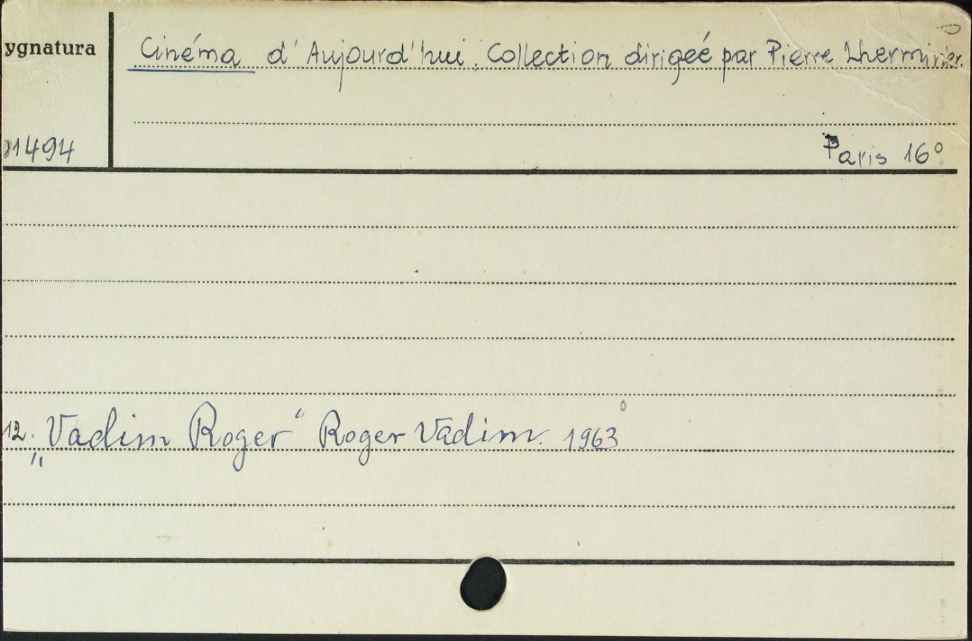 ygnatura
Cinéma d'Aujourd'hui. Collection dirigeé par Pierre Lherminier.
1494
Paris 16°
12. „Vadim Roger“ Roger Vadim. 1963